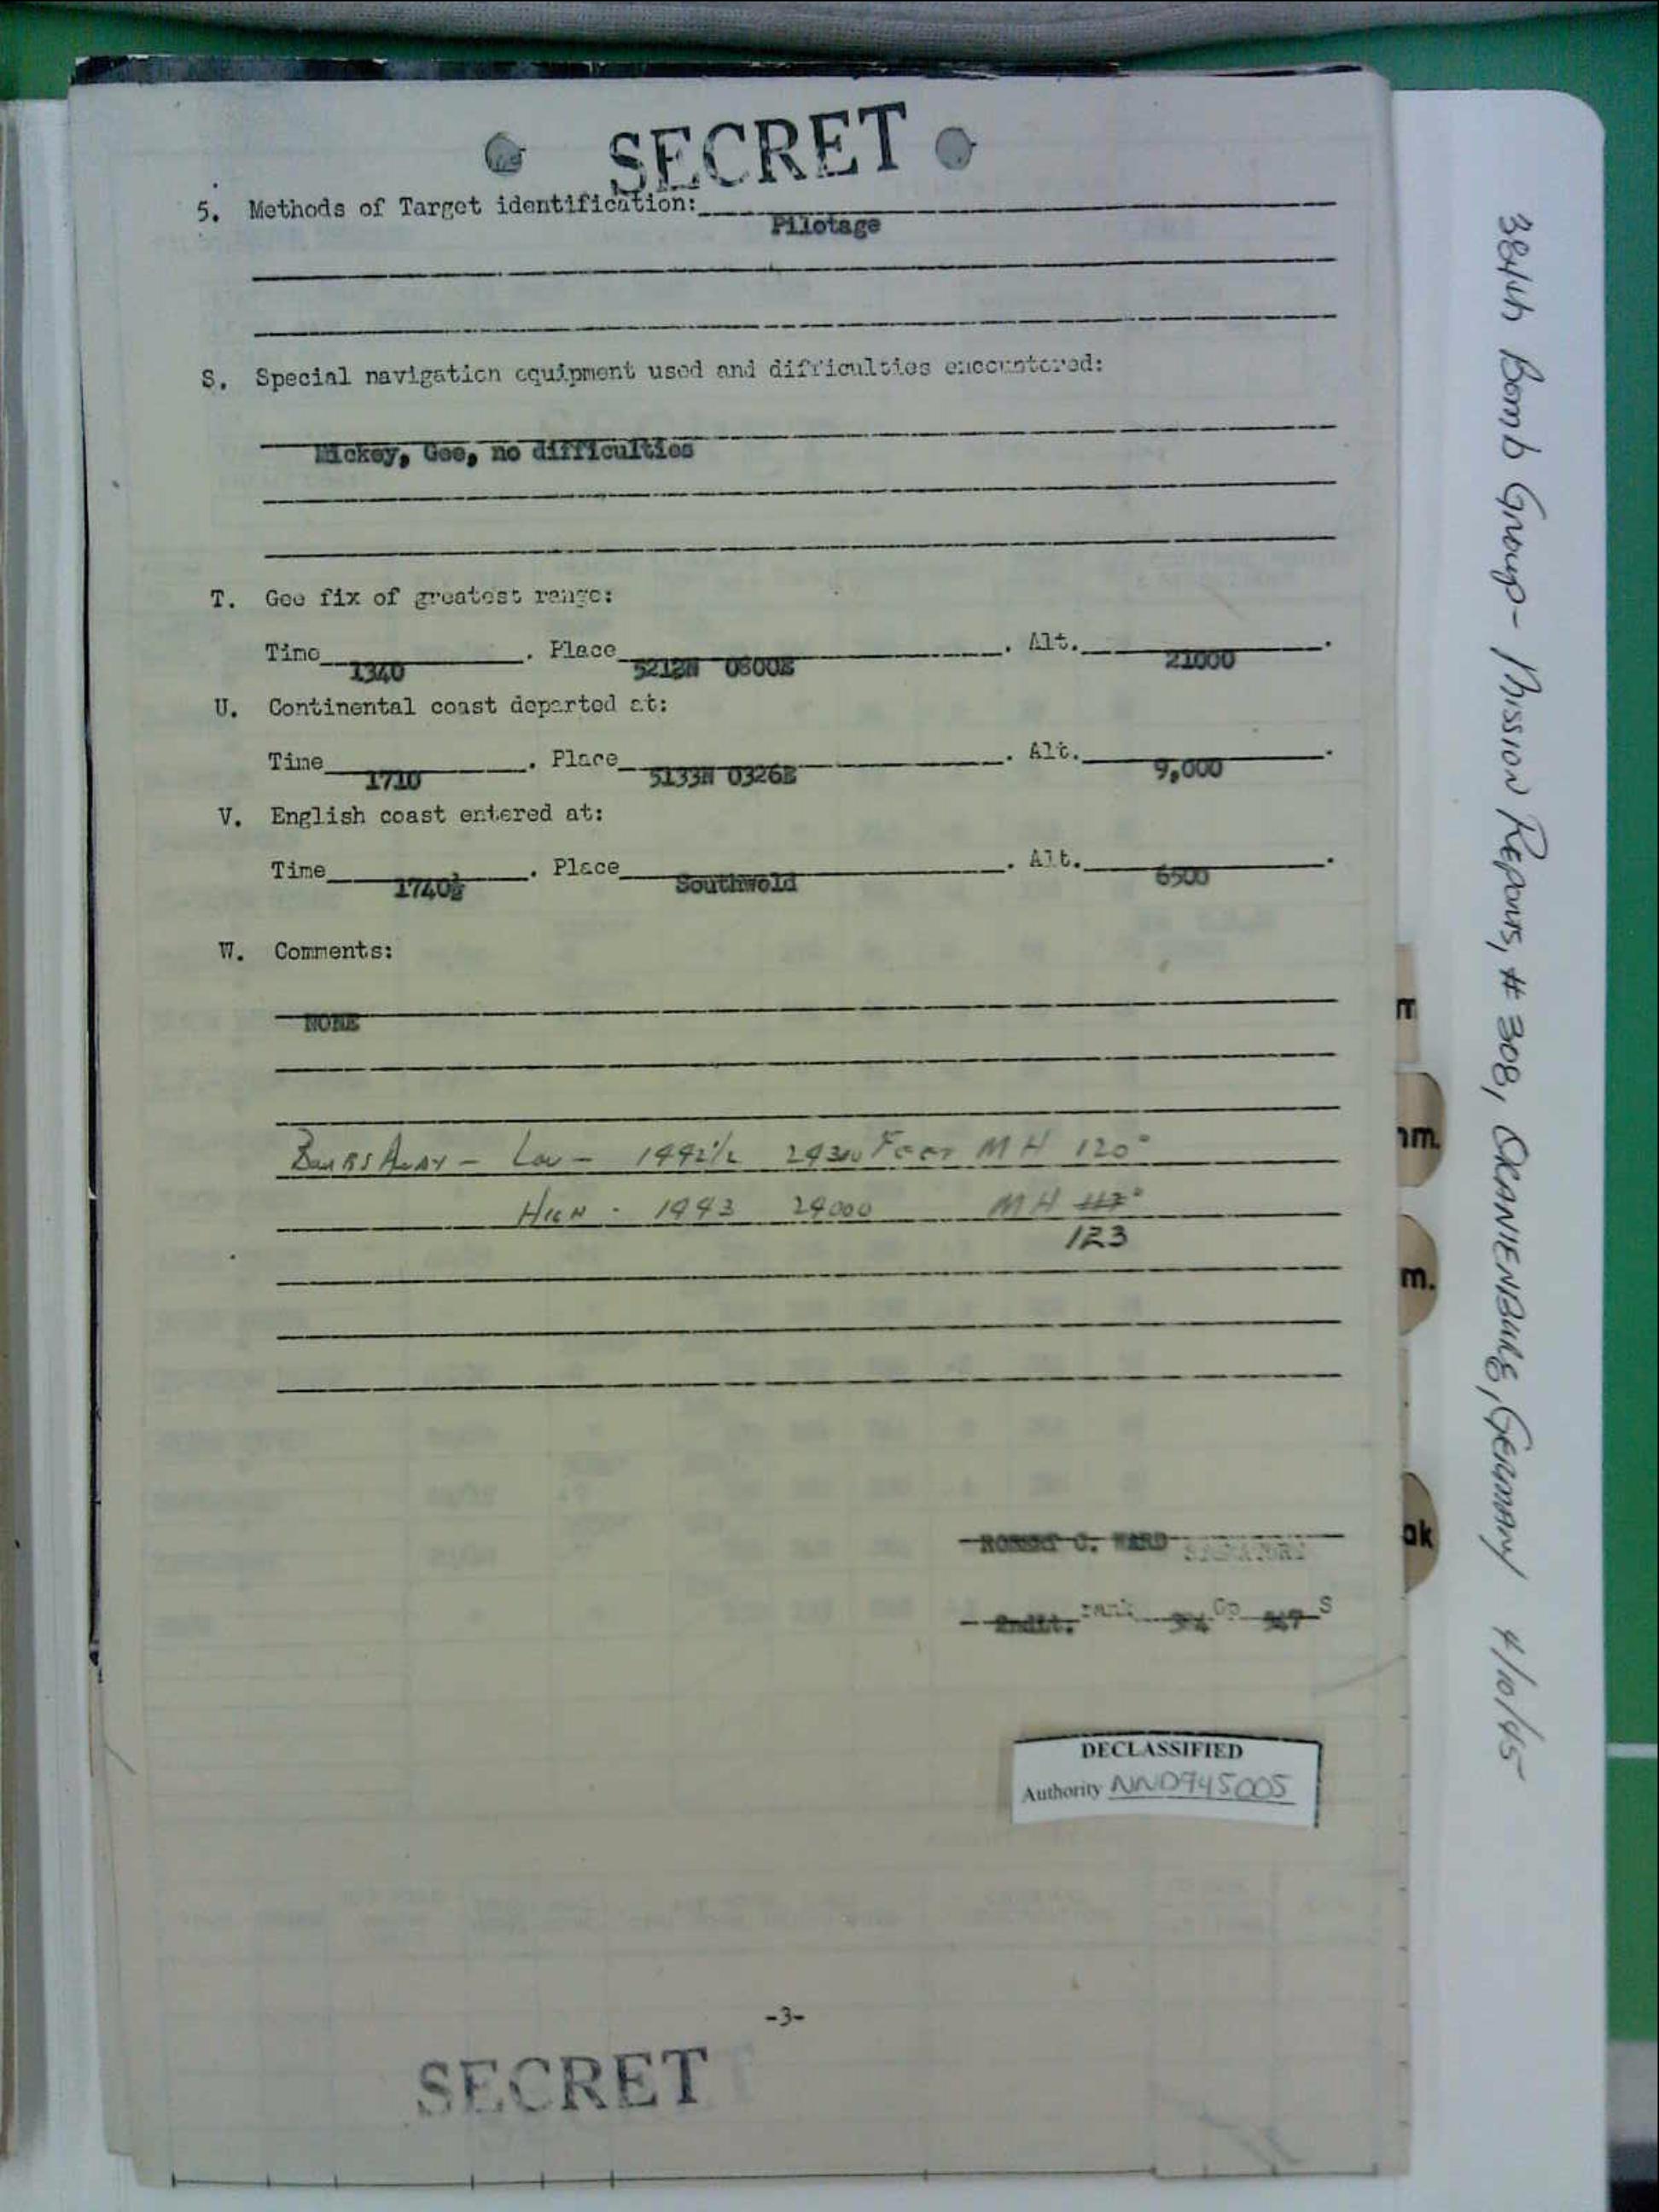 SECRET
5. Methods of Target identification:
Pilotage
S. Special navigation equipment used and difficulties encountered:
Mickey, Gee, no difficulties
T. Gee fix of greatest range:
Time 1340 . Place 5212N 0800E . Alt. 21000 .
U. Continental coast departed at:
Time 1710 . Place 5133N 0326E . Alt. 9,000 .
V. English coast entered at:
Time 1740½ . Place Southwold . Alt. 6500 .
W. Comments:
NONE
Bombs Away - Low - 1442½ 24300 Feet MH 120°
High - 1443 24000 MH 117°
123
ROBERT C. WARD SIGNATURE
2ndLt. rank 384 Gp 547 S
DECLASSIFIED
Authority NND945005
-3-
SECRET
384th Bomb Group - Mission Reports, # 308, ORANIENBURG, GERMANY 4/10/45
m
nm.
m.
ak